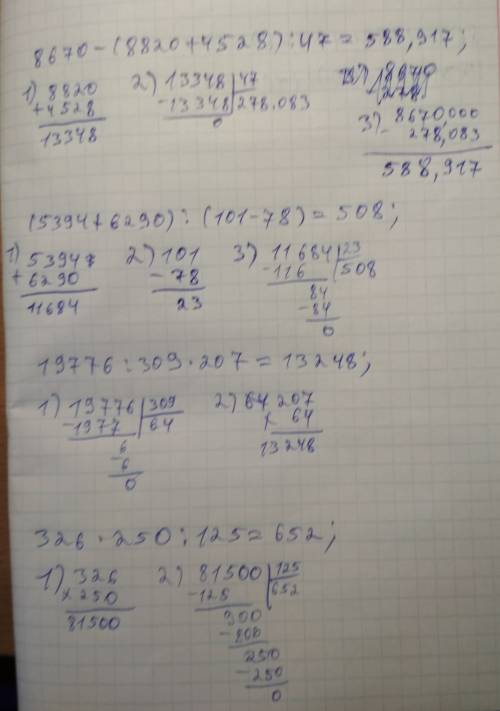 8670-(8820+4528):47=588,917;
1) 8820 2) 13348 | 47
+4528 -13348 | 278.083 3) 8670,000
13348 0 - 278,083
588,917
(5394+6290):(101-78)=508;
1) 5394 2) 101 3) 11684 | 23
+6290 -78 -116 | 508
11684 23 84
-84
0
19776:309·207=13248;
1) 19776 | 309 2) 64 207
-1977 | 64 × 64
6 13248
-6
0
326·250:125=652;
1) 326 2) 81500 | 125
×250 -125 | 652
81500 300
-800
250
-250
0